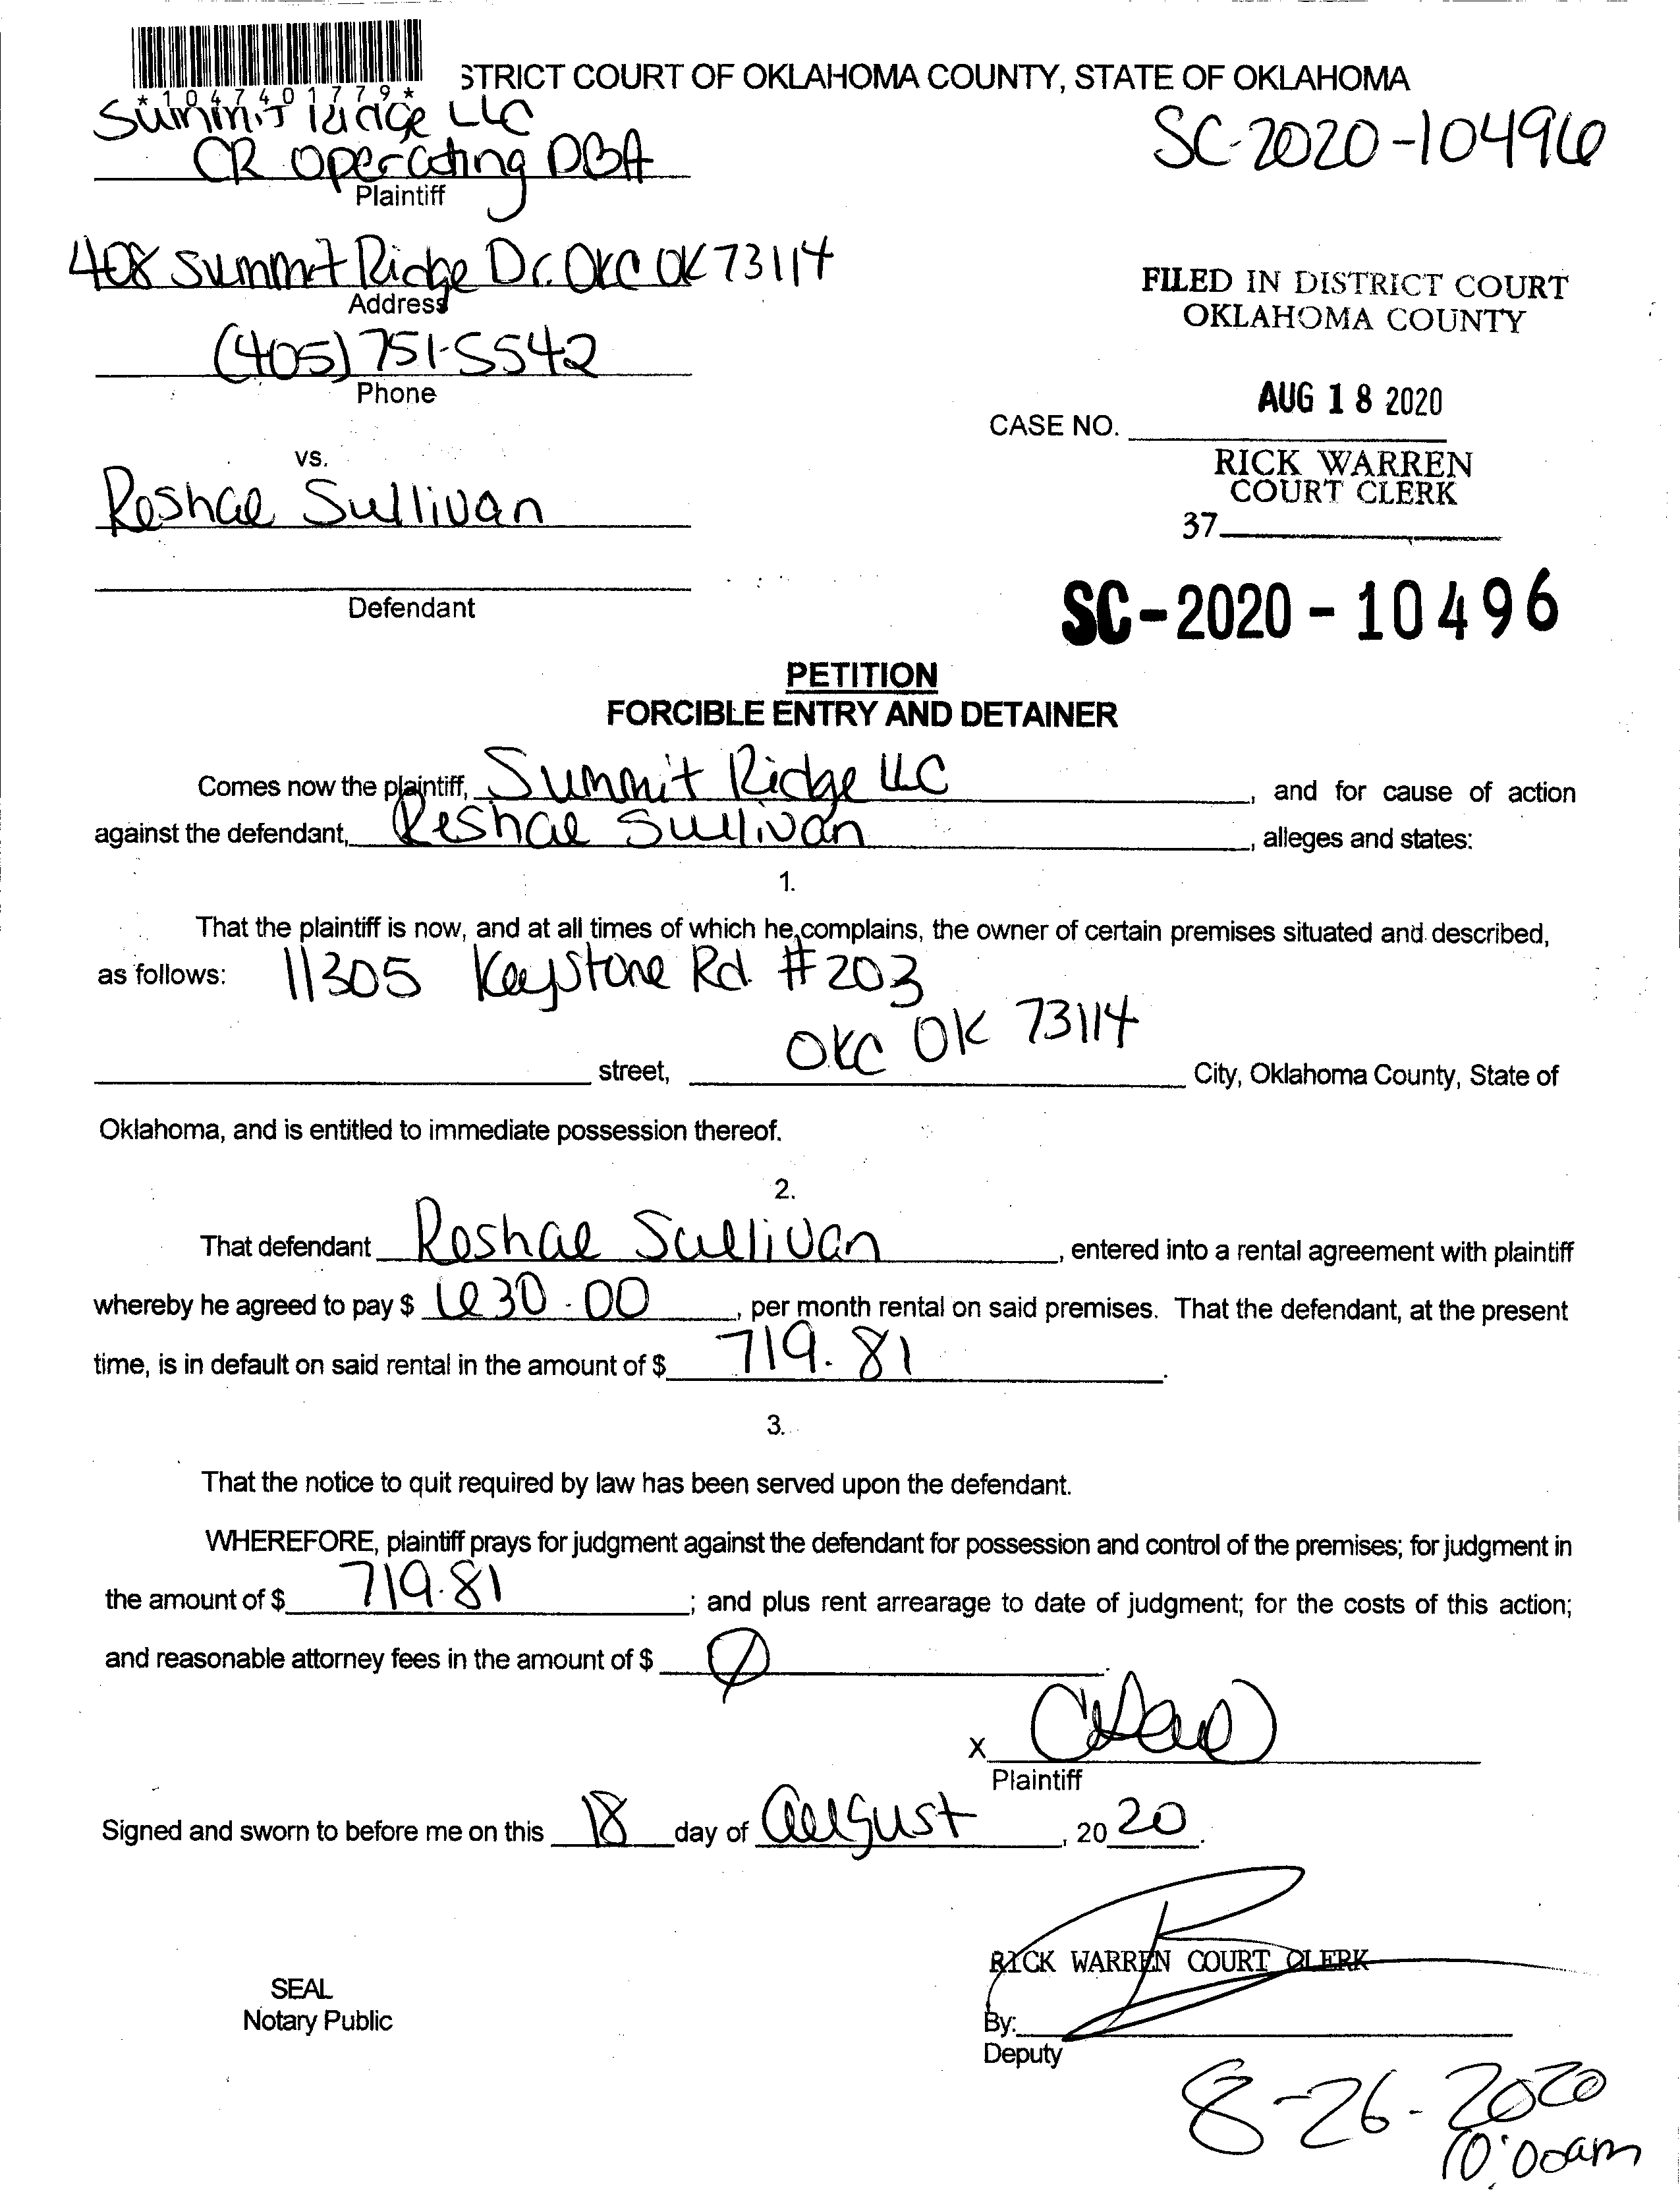 *1047401779*
STRICT COURT OF OKLAHOMA COUNTY, STATE OF OKLAHOMA
Summit Ridge LLC
SC-2020-10496
CR Operating DBA
Plaintiff
408 Summit Ridge Dr. OKC OK 73114
Address
FILED IN DISTRICT COURT
OKLAHOMA COUNTY
(405) 751-5542
Phone
AUG 18 2020
CASE NO.
vs.
RICK WARREN
COURT CLERK
Reshae Sullivan
37
Defendant
SC-2020-10496
PETITION
FORCIBLE ENTRY AND DETAINER
Comes now the plaintiff, Summit Ridge LLC, and for cause of action
against the defendant, Reshae Sullivan, alleges and states:
1.
That the plaintiff is now, and at all times of which he complains, the owner of certain premises situated and described,
as follows: 11305 Keystone Rd. #203
OKC OK 73114
street, City, Oklahoma County, State of
Oklahoma, and is entitled to immediate possession thereof.
2.
That defendant Reshae Sullivan, entered into a rental agreement with plaintiff
whereby he agreed to pay $ 630.00, per month rental on said premises. That the defendant, at the present
time, is in default on said rental in the amount of $ 719.81.
3.
That the notice to quit required by law has been served upon the defendant.
WHEREFORE, plaintiff prays for judgment against the defendant for possession and control of the premises; for judgment in
the amount of $ 719.81; and plus rent arrearage to date of judgment; for the costs of this action;
and reasonable attorney fees in the amount of $ Ø.
X
Plaintiff
Signed and sworn to before me on this 18 day of August, 2020.
RICK WARREN COURT CLERK
SEAL
Notary Public
By:
Deputy
8-26-2020
10:00am